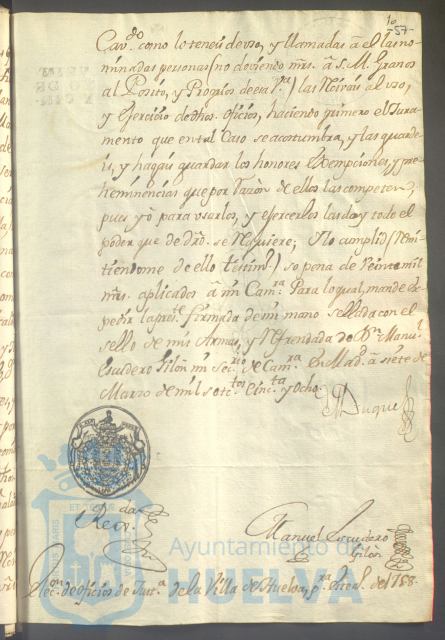 10
-57-
Cav.do como lo teneis de uso, y llamadas à el las no-
minadas personas (no deviendo mrs. à S. M. Granos
al Posito, y Propios de esa v.a) las Reciváis al uso,
y Exercicio de dhos. oficios, haciendo primero el Jura-
mento que en tal Caso se acostumbra, y las guarde-
is, y hagáis guardar los honores Exempciones, y pre-
heminencias que por razòn de ellos las competen,
pues yò para usarlos, y exercerlos las doy todo el
poder que de dro. se Requiere; Y lo cumplid (Remi-
tiendome de ello testim.o) so pena de Veinte mil
mrs. aplicados à mi Cam.ra Para lo qual, mandè ex-
pedir la pres.te firmada de mi mano sellada con el
sello de mis Armas, y Refrendada de Dn. Manu.l
Escudero Gilòn mi sec.rio de Cam.ra En Mad.d à siete de
Marzo de mil setec.tos cinc.ta y Ocho.
El Duque
Reg.da
Manuel Escudero
Gilon
Elec.on de oficios de Just.a de la Villa de Huelva, p.ra este a.o de 1758.
Ayuntamiento de
HUELVA